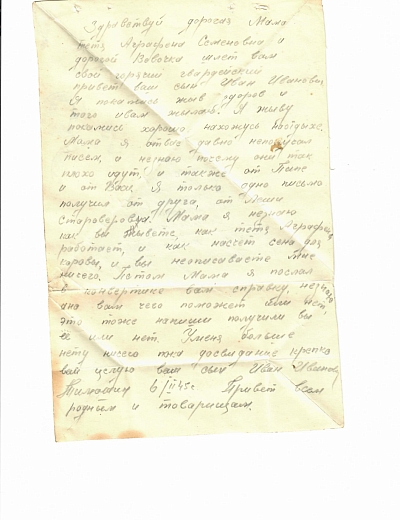 Здравствуй дорогая Мама
тетя Аграфена Семеновна и
дорогой Вовочка шлет вам
свой горячий гвардейский
привет ваш сын Иван Иванович
Я покамись жыв здоров и
того и вам жылаю. Я жыву
покамись хорошо нахожусь на отдыхе.
Мама я от вас давно неполучал
писем, и незнаю почему они так
плохо идут, и также от
и от Васи. Я только одно письмо
получил от друга, от Лёши
Староверовца. Мама я незнаю
как вы живете, как тетя Аграфена
работает, и как насчет сена для
коровы, и вы неописываете мне
ничего. Потом Мама я послал
в конвертике вам справку, незнаю
она вам чего поможет или нет,
это тоже напиши получили вы
её или нет. Уменя больше
нету ничего пока досвидание крепко
вас целую ваш сын Иван Иванов
6/II 45г Привет всем
родным и товарищам.